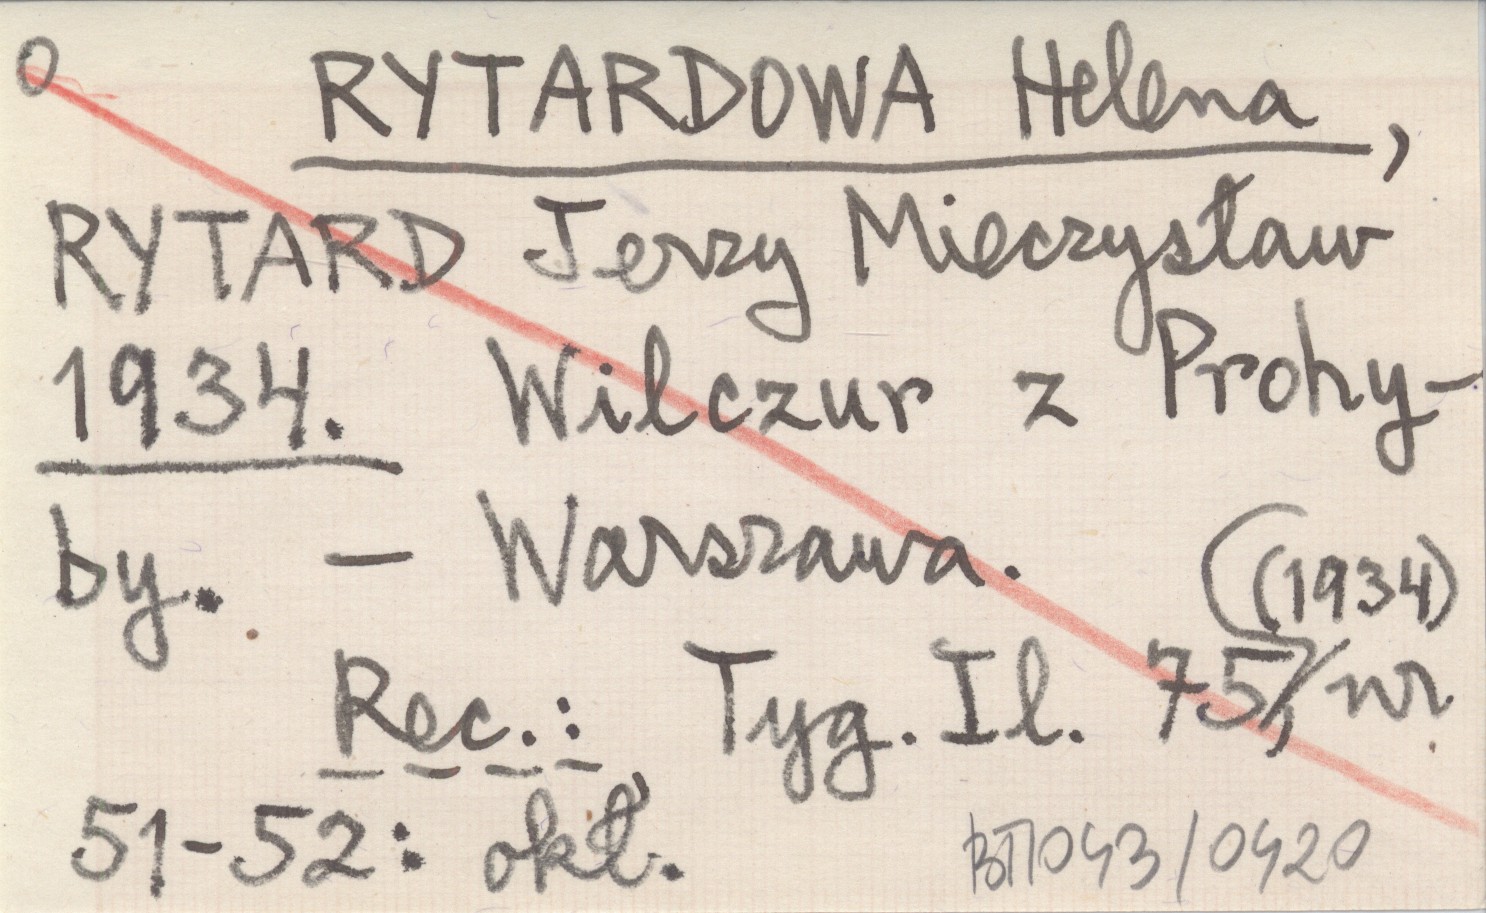 O RYTARDOWA Helena,
RYTARD Jerzy Mieczysław
1934. Wilczur z Prohy-
by. – Warszawa.
(1934)
Rec.: Tyg. Il. 75, nr
51-52: okł.
BTT043/0420